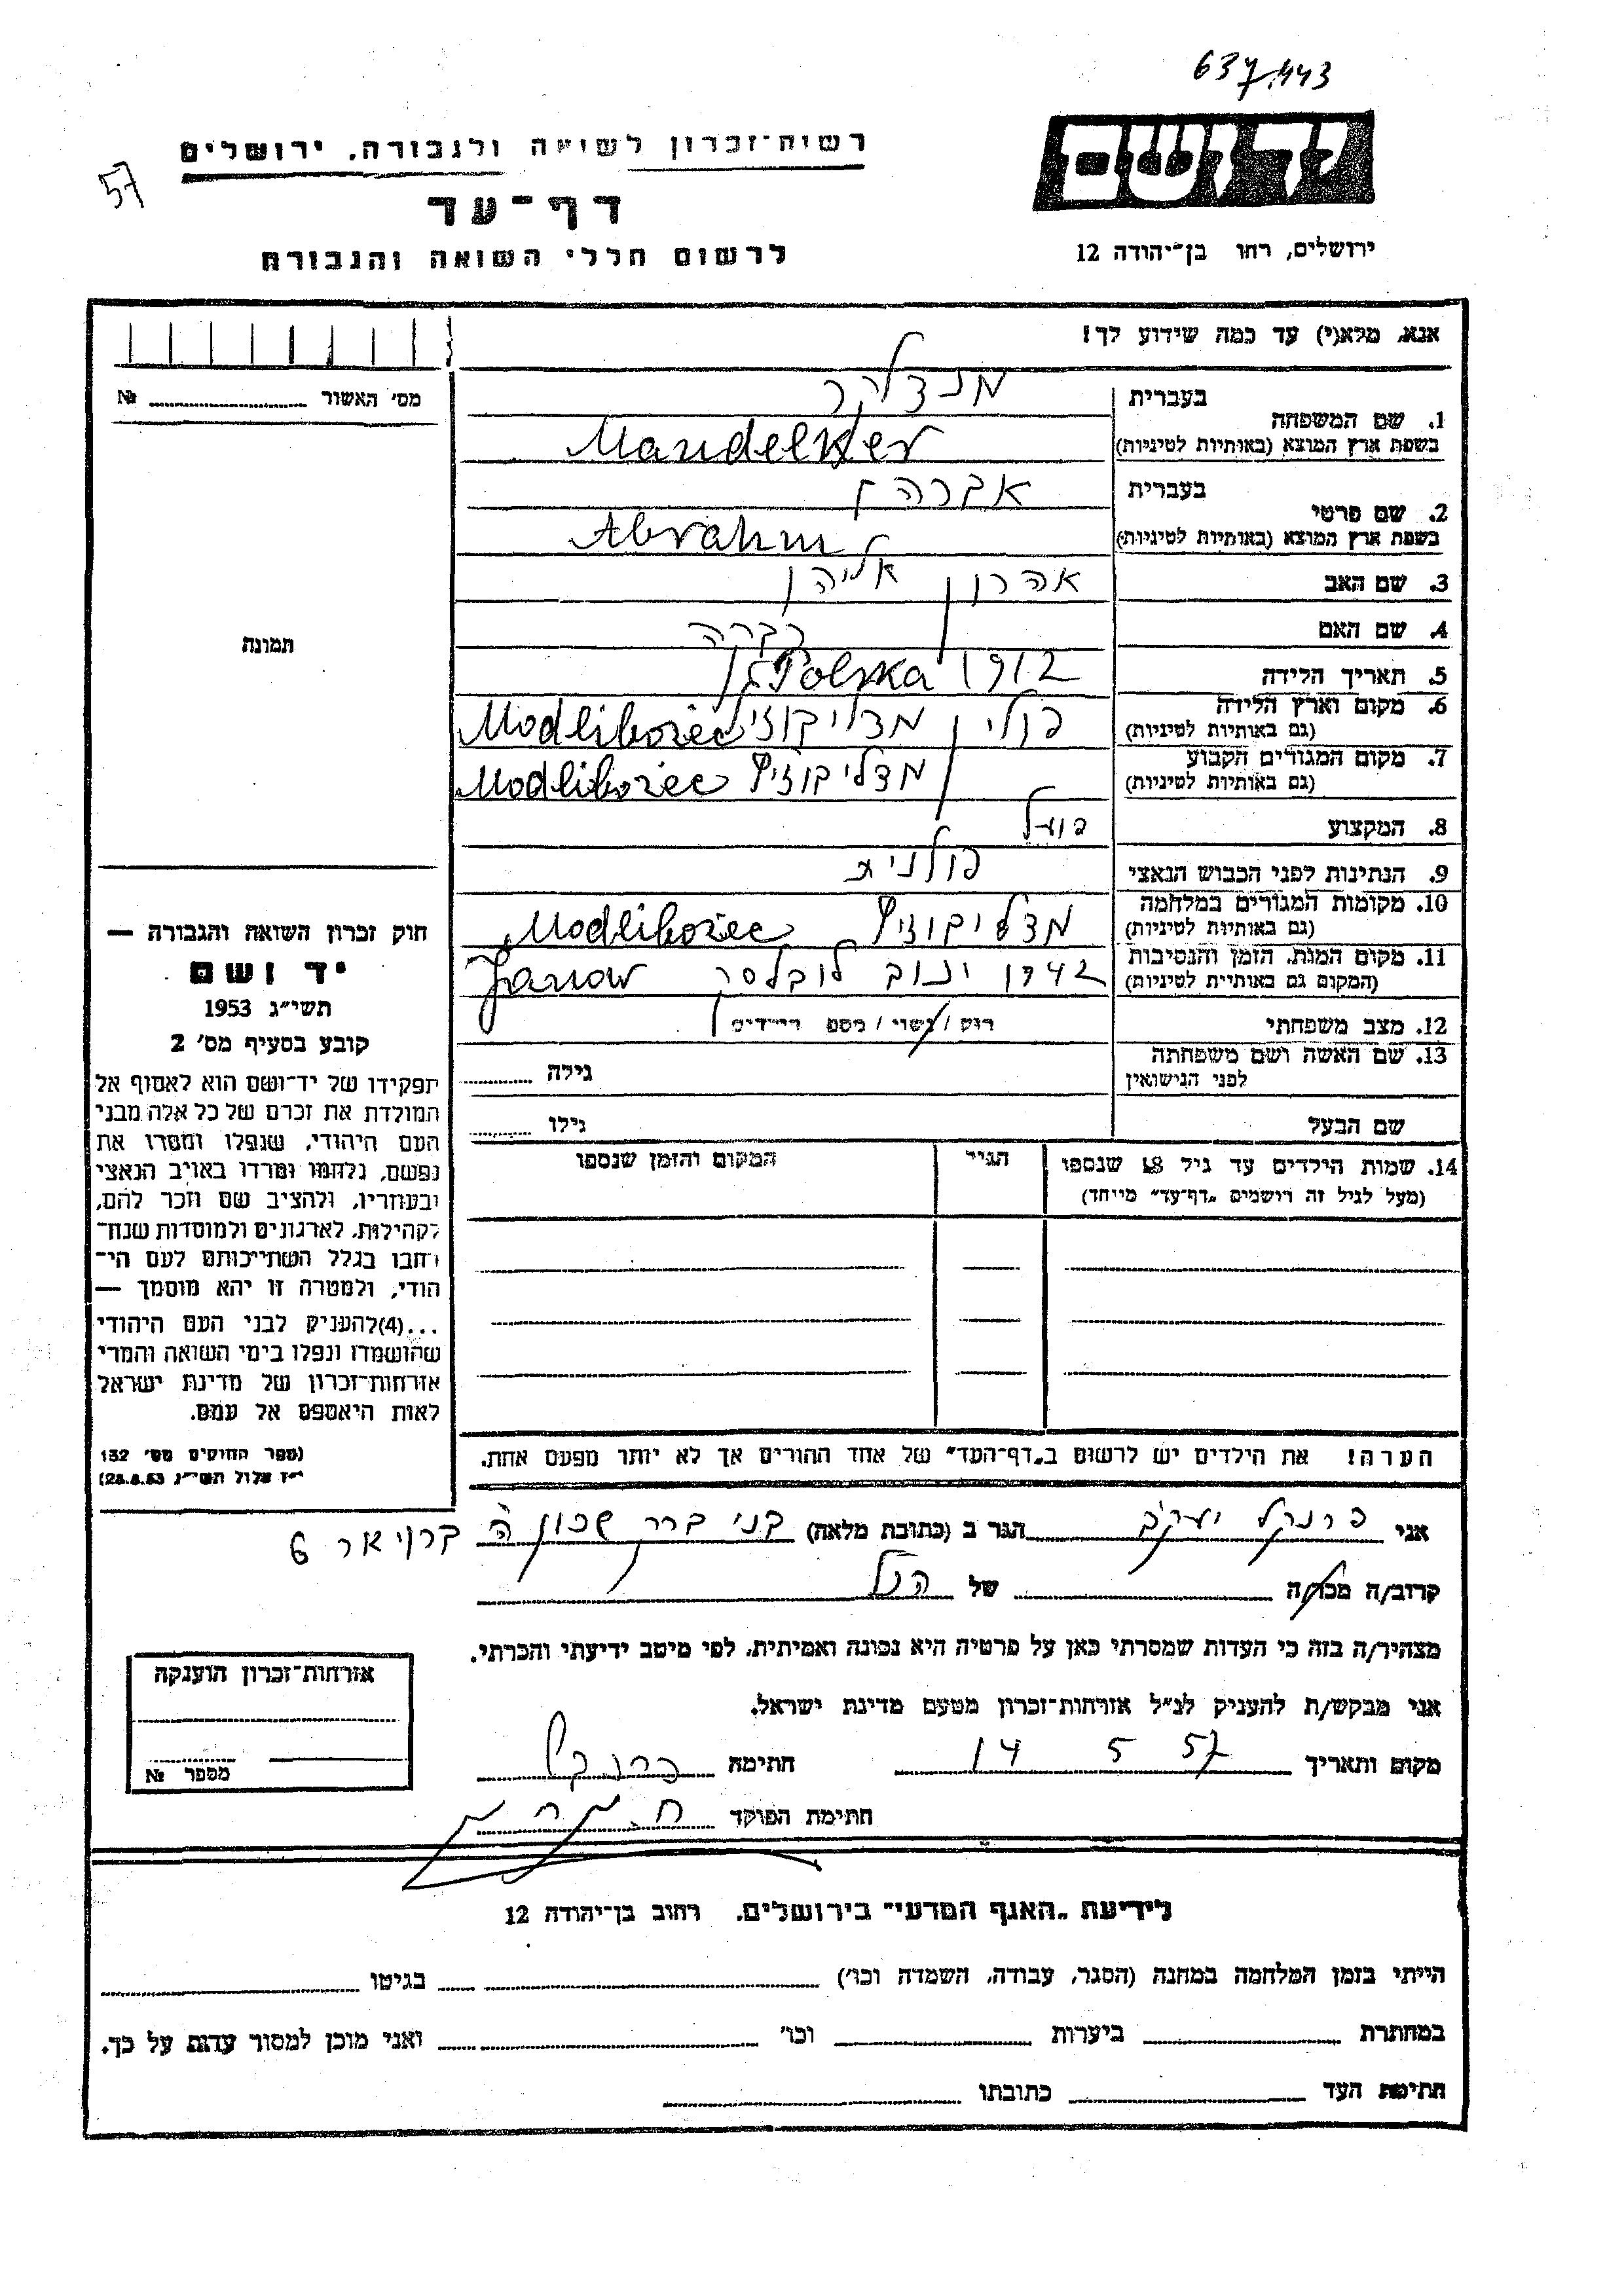 637443
57
יד ושם
רשות־זכרון לשואה ולגבורה, ירושלים
דף־עד
לרשום חללי השואה והגבורה
ירושלים, רחו בן־יהודה 12
אנא, מלא(י) עד כמה שידוע לך!
מס׳ האשור № 
1. שם המשפחה בעברית מנדלקר
בשפת ארץ המוצא (באותיות לטיניות) Mandelker
2. שם פרטי בעברית אברהם
בשפת ארץ המוצא (באותיות לטיניות) Abrahm
3. שם האב אהרון אליהו
4. שם האם
5. תאריך הלידה 1912
6. מקום וארץ הלידה (גם באותיות לטיניות) פולין מדליבוזיץ Modliborzec Polska
7. מקום המגורים הקבוע (גם באותיות לטיניות) מדליבוזיץ Modliborzec
8. המקצוע פועל
9. הנתינות לפני הכבוש הנאצי פולנית
10. מקומות המגורים במלחמה (גם באותיות לטיניות) מדליבוזיץ Modliborzec
11. מקום המות, הזמן והנסיבות (המקום גם באותיית לטיניות) 1942 ינוב לובלסק Janow
12. מצב משפחתי רוק / נשוי / מספ הילדים
13. שם האשה ושם משפחתה לפני הנישואין גילה
שם הבעל גילו
14. שמות הילדים עד גיל 18 שנספו הגיל המקום והזמן שנספו
(מעל לגיל זה רושמים „דף־עד״ מייחד)
הערה! את הילדים יש לרשום ב„דף־העד״ של אחד ההורים אך לא יותר מפעם אחת.
תמונה
חוק זכרון השואה והגבורה —
יד ושם
תשי״ג 1953
קובע בסעיף מס׳ 2
תפקידו של יד־ושם הוא לאסוף אל
המולדת את זכרם של כל אלה מבני
העם היהודי, שנפלו ומסרו את
נפשם, נלחמו ומרדו באויב הנאצי
ובעוזריו, ולהציב שם וזכר להם,
לקהילות, לארגונים ולמוסדות שנח־
רחבו בגלל השתייכותם לעם הי־
הודי, ולמטרה זו יהא מוסמך —
...(4)להעניק לבני העם היהודי
שהושמדו ונפלו בימי השואה והמרי
אזרחות־זכרון של מדינת ישראל
לאות היאספם אל עמם.
(ספר החוקים מס׳ 132
י״ז אלול תשי״ג 28.8.53)
אני פרנקל יעקב הגר ב (כתובת מלאה) בני ברק שכון ה 6
קרוב/ה מכר/ה של הנ״ל
מצהיר/ה בזה כי העדות שמסרתי כאן על פרטיה היא נכונה ואמיתית, לפי מיטב ידיעתי והכרתי.
אני מבקש/ת להעניק לנ״ל אזרחות־זכרון מטעם מדינת ישראל.
מקום ותאריך 14 5 57 חתימה פרנקל
חתימת הפוקד
אזרחות־זכרון הוענקה
מספר №
לידיעת „האגף המדעי״ בירושלים, רחוב בן־יהודה 12
הייתי בזמן המלחמה במחנה (הסגר, עבודה, השמדה וכו׳) בגיטו
במחתרת ביערות וכו׳ ואני מוכן למסור עדות על כך.
חתימת העד כתובתו